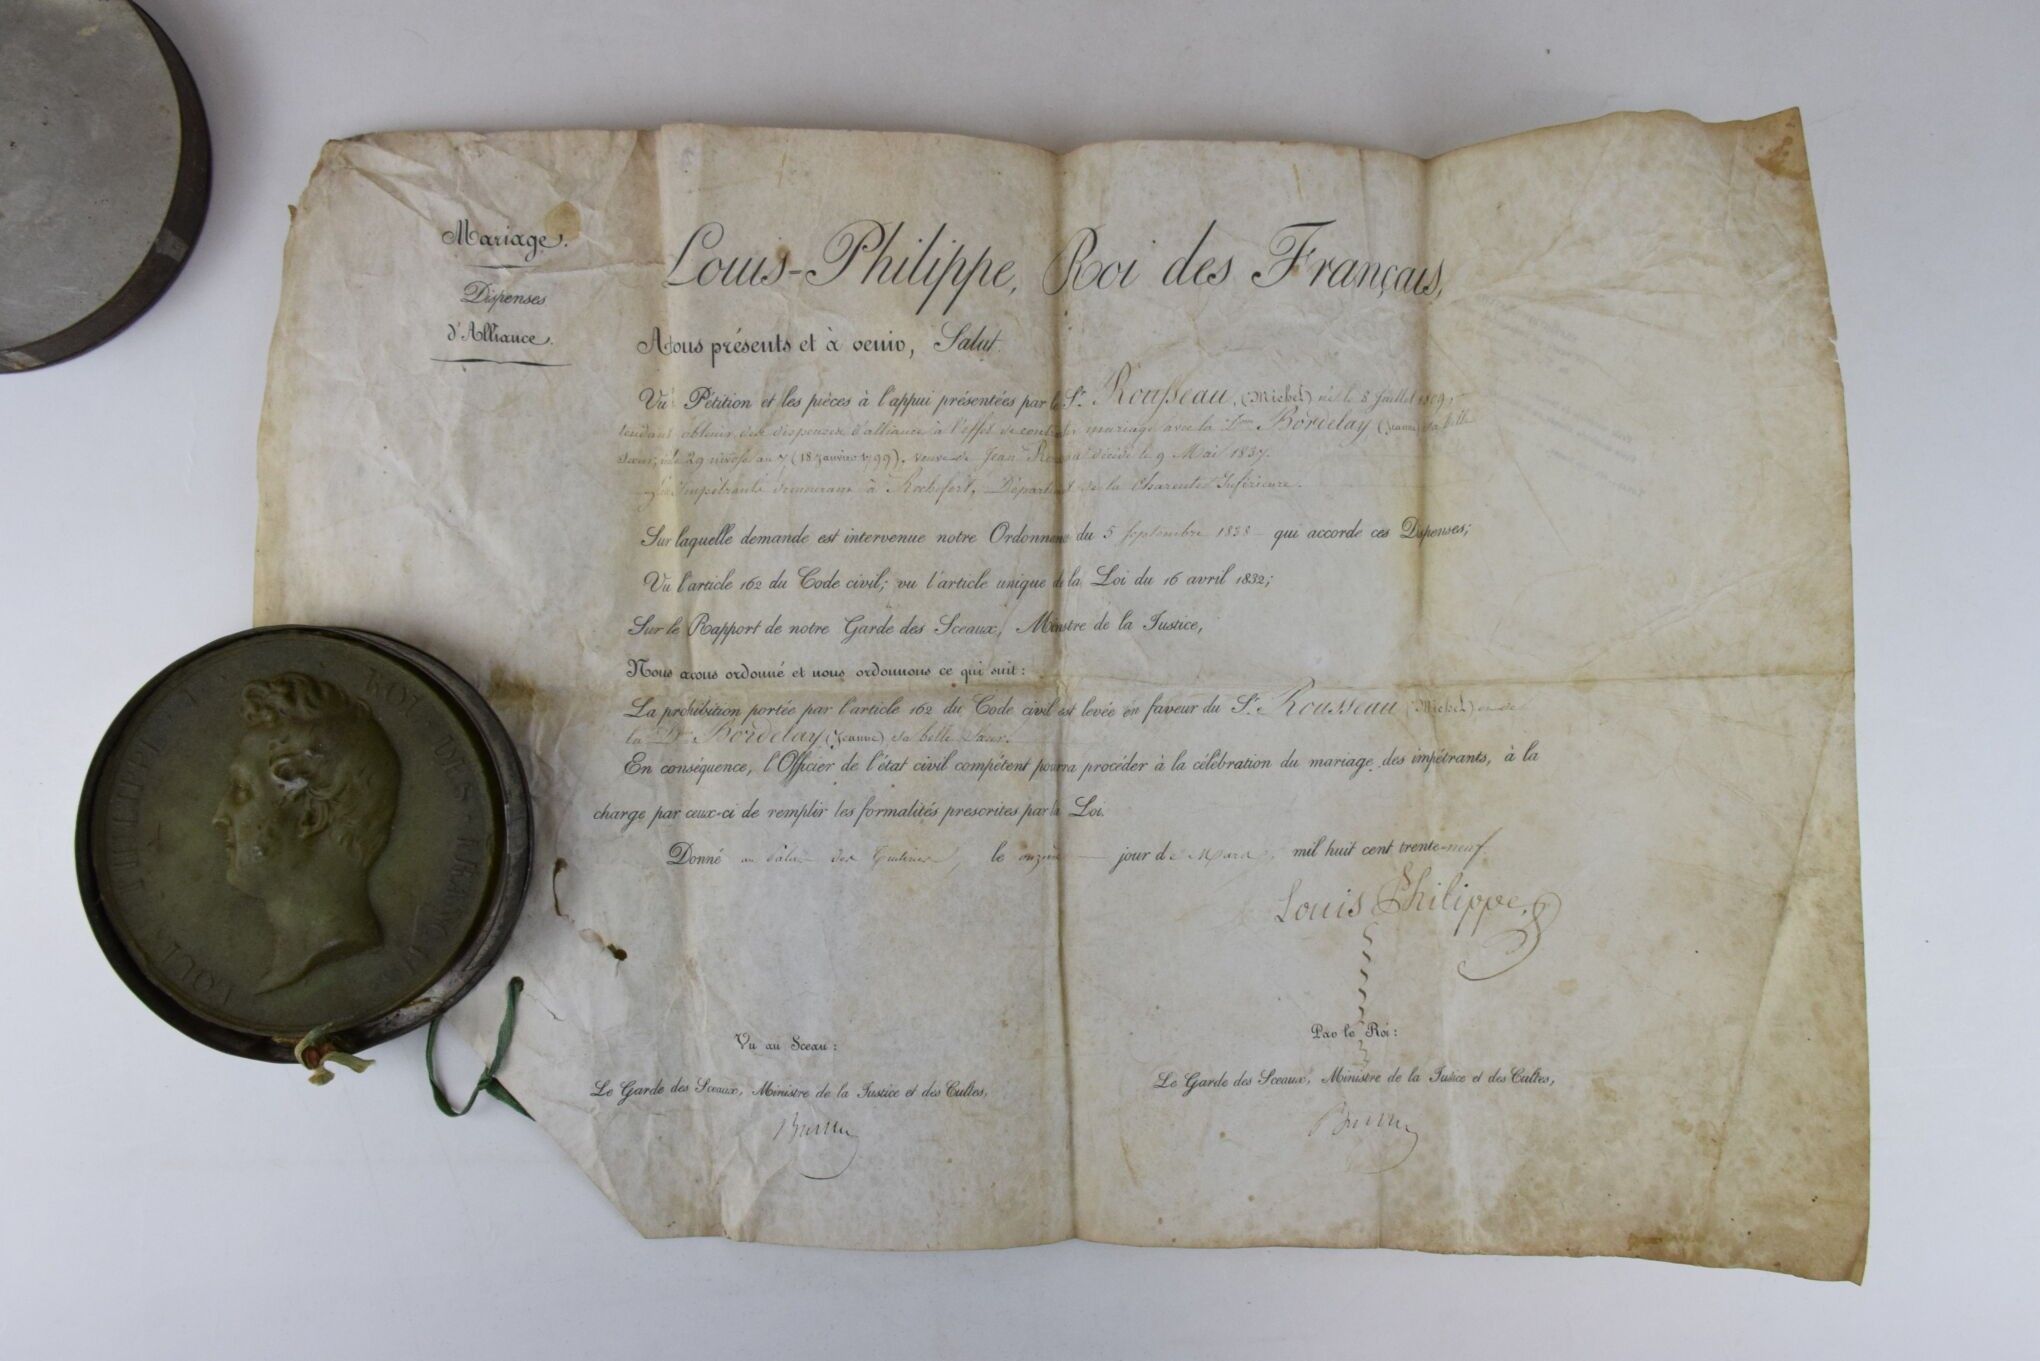 Mariage.
Dispenses
d'Alliance.
Louis-Philippe, Roi des Français,
A tous présents et à venir, Salut.
Vu Pétition et les pièces à l'appui présentées par le Sr. Rousseau, (Michel) né le 8 Juillet 1809,
tendant obtenir des dispenses d'alliance à l'effet de contracter mariage avec la Dme Bordelay (Jeanne) sa belle
sœur, née 29 nivôse an 7 (18 Janvier 1799), veuve de Jean Rousseau décédé le 9 Mai 1837.
impétrants demeurant à Rochefort, Département de la Charente Inférieure.
Sur laquelle demande est intervenue notre Ordonnance du 5 Septembre 1838 qui accorde ces Dispenses;
Vu l'article 162 du Code civil; vu l'article unique de la Loi du 16 avril 1832;
Sur le Rapport de notre Garde des Sceaux, Ministre de la Justice,
Nous avons ordonné et nous ordonnons ce qui suit:
La prohibition portée par l'article 162 du Code civil est levée en faveur du Sr. Rousseau (Michel) et de
la Dme Bordelay (Jeanne) sa belle sœur.
En conséquence, l'Officier de l'état civil compétent pourra procéder à la célébration du mariage des impétrants, à la
charge par ceux-ci de remplir les formalités prescrites par la Loi.
Donné au Palais des Tuileries, le onzième jour de Mars, mil huit cent trente-neuf.
Louis Philippe
Vu au Sceau:
Par le Roi:
Le Garde des Sceaux, Ministre de la Justice et des Cultes,
Le Garde des Sceaux, Ministre de la Justice et des Cultes,
LOUIS PHILIPPE I ROI DES FRANÇAIS